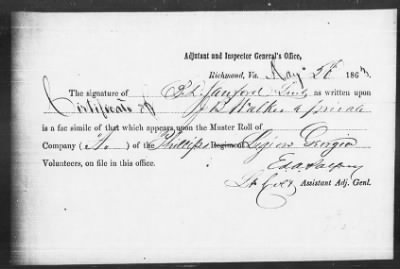 Adjutant and Inspector General's Office,
Richmond, Va. May 5th 1863
The signature of Sanford Lieut as written upon
Certificate of J B Walker a private
is a fac simile of that which appears upon the Muster Roll of
Company (A.) of the Phillips Regiment of Legion Georgia
Volunteers, on file in this office.
Ed A Palfrey
Lt Col & Assistant Adj. Genl.